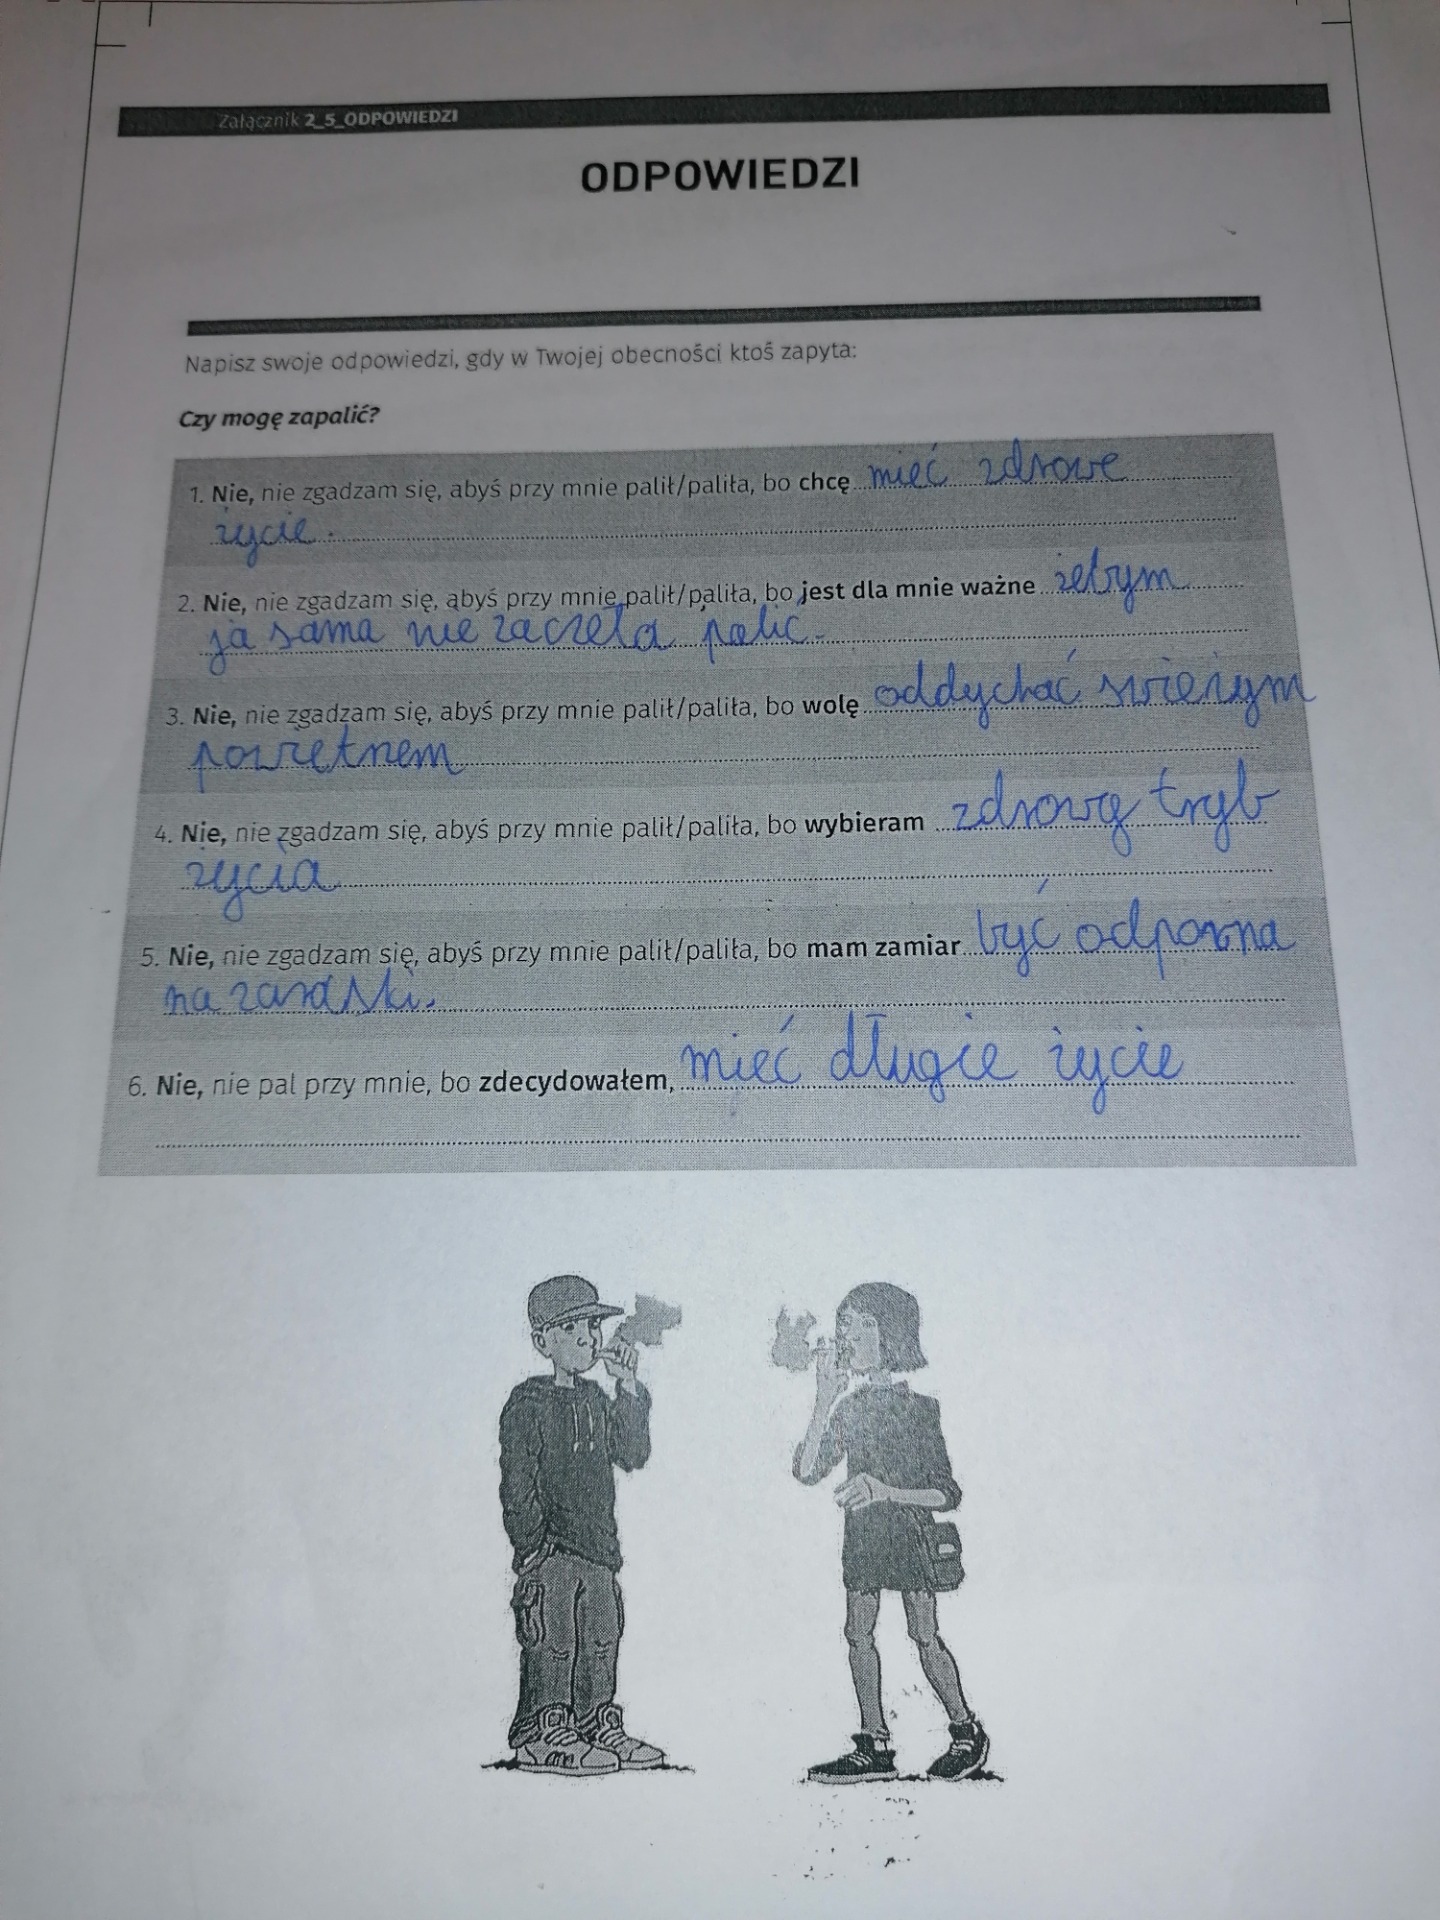 Załącznik 2_5_ODPOWIEDZI
ODPOWIEDZI
Napisz swoje odpowiedzi, gdy w Twojej obecności ktoś zapyta:
Czy mogę zapalić?
1. Nie, nie zgadzam się, abyś przy mnie palił/paliła, bo chcę mieć zdrowe
życie.
2. Nie, nie zgadzam się, abyś przy mnie palił/paliła, bo jest dla mnie ważne żebym
ja sama nie zaczeła palić.
3. Nie, nie zgadzam się, abyś przy mnie palił/paliła, bo wolę oddychać swieżym
powietrzem
4. Nie, nie zgadzam się, abyś przy mnie palił/paliła, bo wybieram zdrowy tryb
życia
5. Nie, nie zgadzam się, abyś przy mnie palił/paliła, bo mam zamiar być odporna
na zarazki.
6. Nie, nie pal przy mnie, bo zdecydowałem, mieć długie życie